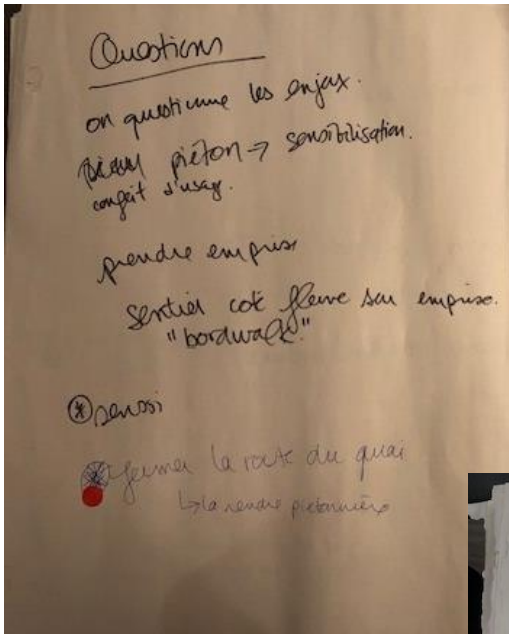 Questions
on questionne les enjax.
piéton → sensibilisation.
conflit d'usage.
prendre emprise
sentier coté fleuve sur emprise.
"bordwalk"
fermer la route du quai
↳ la rendre piétonnière